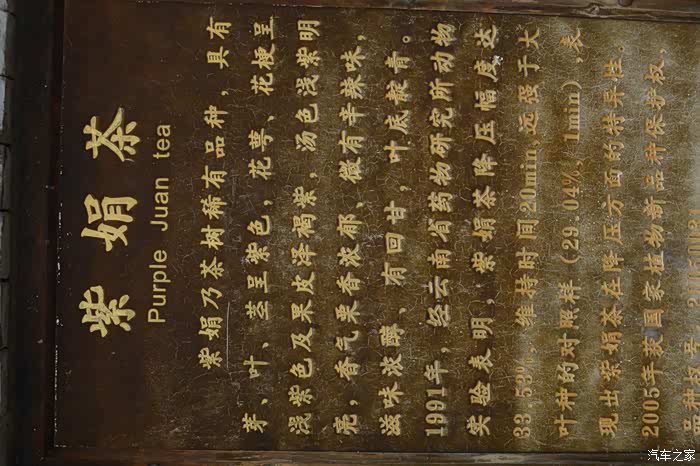 紫娟茶
Purple Juan tea
紫娟乃茶树稀有品种，具有
芽、叶、茎呈紫色，花萼、花梗呈
浅紫色及果皮泽褐紫，汤色浅紫明
亮，香气栗香浓郁、微有辛辣味，
滋味浓醇、有回甘，叶底靛青。
1991年，经云南省药物研究所动物
实验表明，紫娟茶降压幅度达
33.53%，维持时间20min，远强于大
叶种的对照样（29.04%，1min），表
现出紫娟茶在降压方面的特异性。
2005年获国家植物新品种保护权，
品种权号
汽车之家